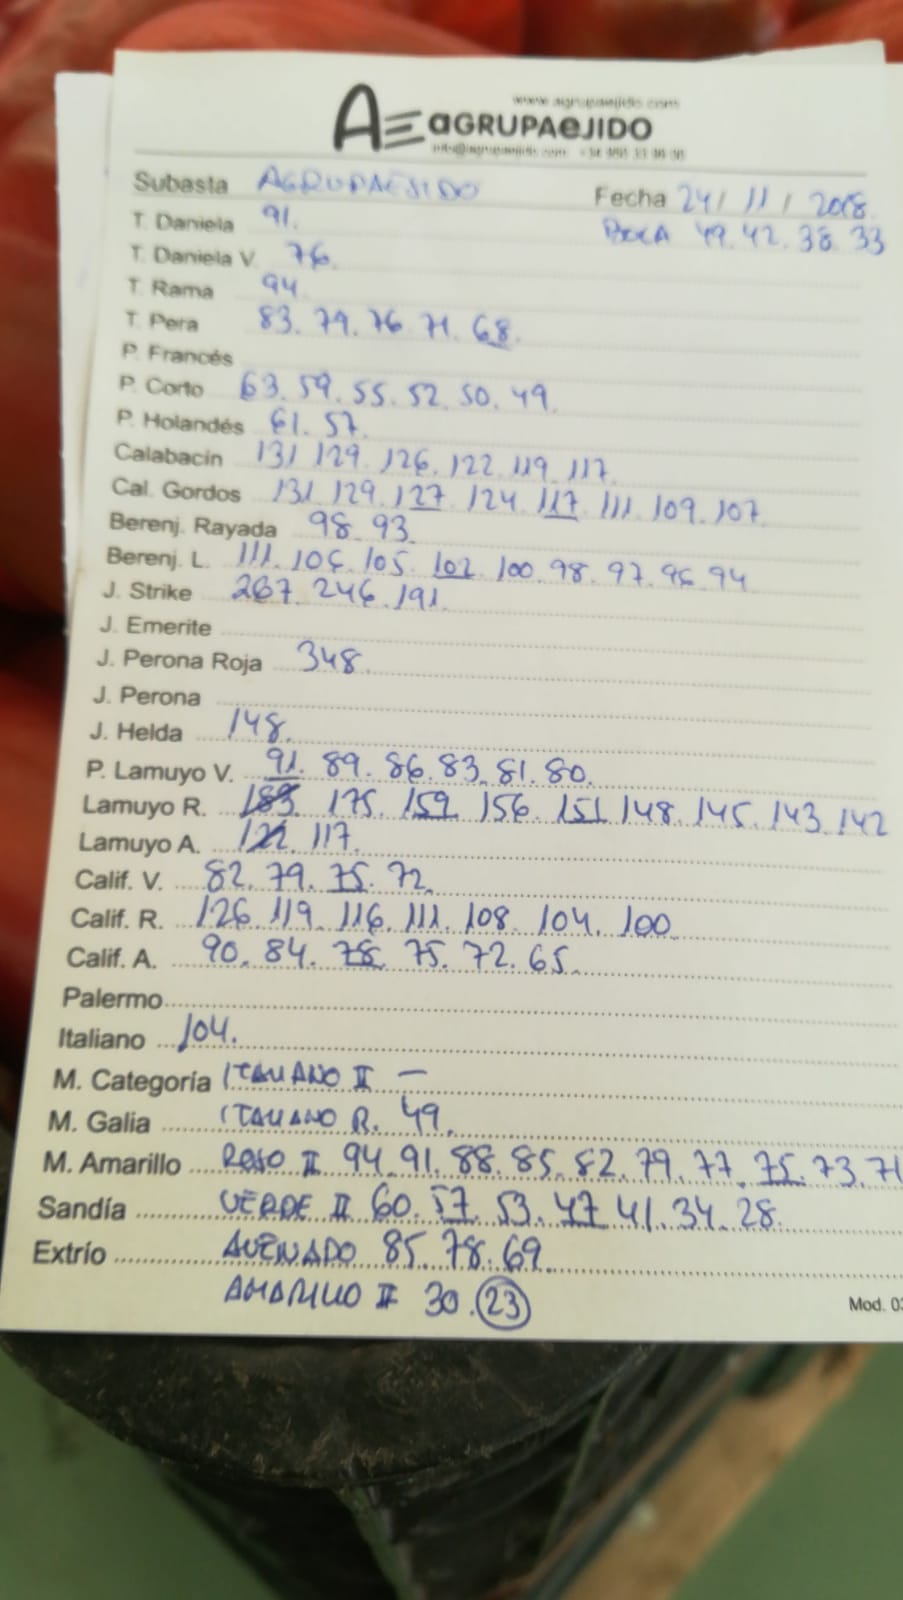 www.agrupaejido.com
AGRUPAEJIDO
info@agrupaejido.com
Subasta AGRUPAEJIDO Fecha 24/11/2018
T. Daniela 91. 49. 42. 38. 33
T. Daniela V. 76.
T. Rama 94
T. Pera 83. 79. 76. 71. 68.
P. Francés
P. Corto 63. 59. 55. 52. 50. 49.
P. Holandés 61. 57.
Calabacín 131 129. 126. 122. 119. 117.
Cal. Gordos 131. 129. 127. 124. 117. 111. 109. 107.
Berenj. Rayada 98. 93.
Berenj. L. 111. 106. 105. 102. 100. 98. 97. 96. 94
J. Strike 267. 246. 191.
J. Emerite
J. Perona Roja 348.
J. Perona
J. Helda 148.
P. Lamuyo V. 91. 89. 86. 83. 81. 80.
Lamuyo R. 183. 175. 159. 156. 151. 148. 145. 143. 142
Lamuyo A. 117.
Calif. V. 82. 79. 75. 72.
Calif. R. 126. 119. 116. 111. 108. 104. 100
Calif. A. 90. 84. 78. 75. 72. 65.
Palermo
Italiano 104.
M. Categoría ITALIANO II —
M. Galia ITALIANO R. 49.
M. Amarillo ROJO II 94. 91. 88. 85. 82. 79. 77. 75. 73. 71
Sandía VERDE II 60. 57. 53. 47 41. 34. 28.
Extrío ASURNADO 85. 78. 69.
AMARILLO II 30. 23
Mod. 03